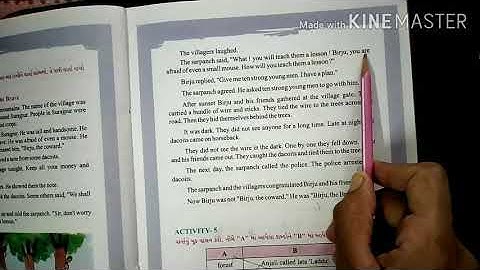 Made with KINEMASTER
The villagers laughed.
The sarpanch said, "What ! you will teach them a lesson ! Birju, you are
afraid of even a small mouse. How will you teach them a lesson ?"
Birju replied, "Give me ten strong young men. I have a plan."
The sarpanch agreed. He asked ten strong young men to go with him.
After sunset Birju and his friends gathered at the village gate. They
carried a bundle of wire and sticks. They tied the wire to the trees across
road. Then they hid themselves behind the trees.
It was dark. They did not see anyone for a long time. Late at night
dacoits came on horseback.
They did not see the wire in the dark. One by one they fell down.
and his friends came out. They caught the dacoits and tied them to the tree
The next day, the sarpanch called the police. The police arreste
dacoits.
The sarpanch and the villagers congratulated Birju and his frien
Now Birju was not "Birju, the coward." He was "Birju, the B
ACTIVITY- 5
A B
forest Anjali called lata 'Laddu'
Brave
mountains. The name of the village was
round Surajpur. People in Surajpur were
Birju. He was tall and handsome. He
He was afraid of even a mouse. He
named him, "Birju, the coward."
d a note from some dacoits.
ge tonight. Keep all your money and
rs. He showed them the note.
d the dacoits. Some others said, "We shall
p and told the sarpanch. "Sir, don't worry
a lesson."